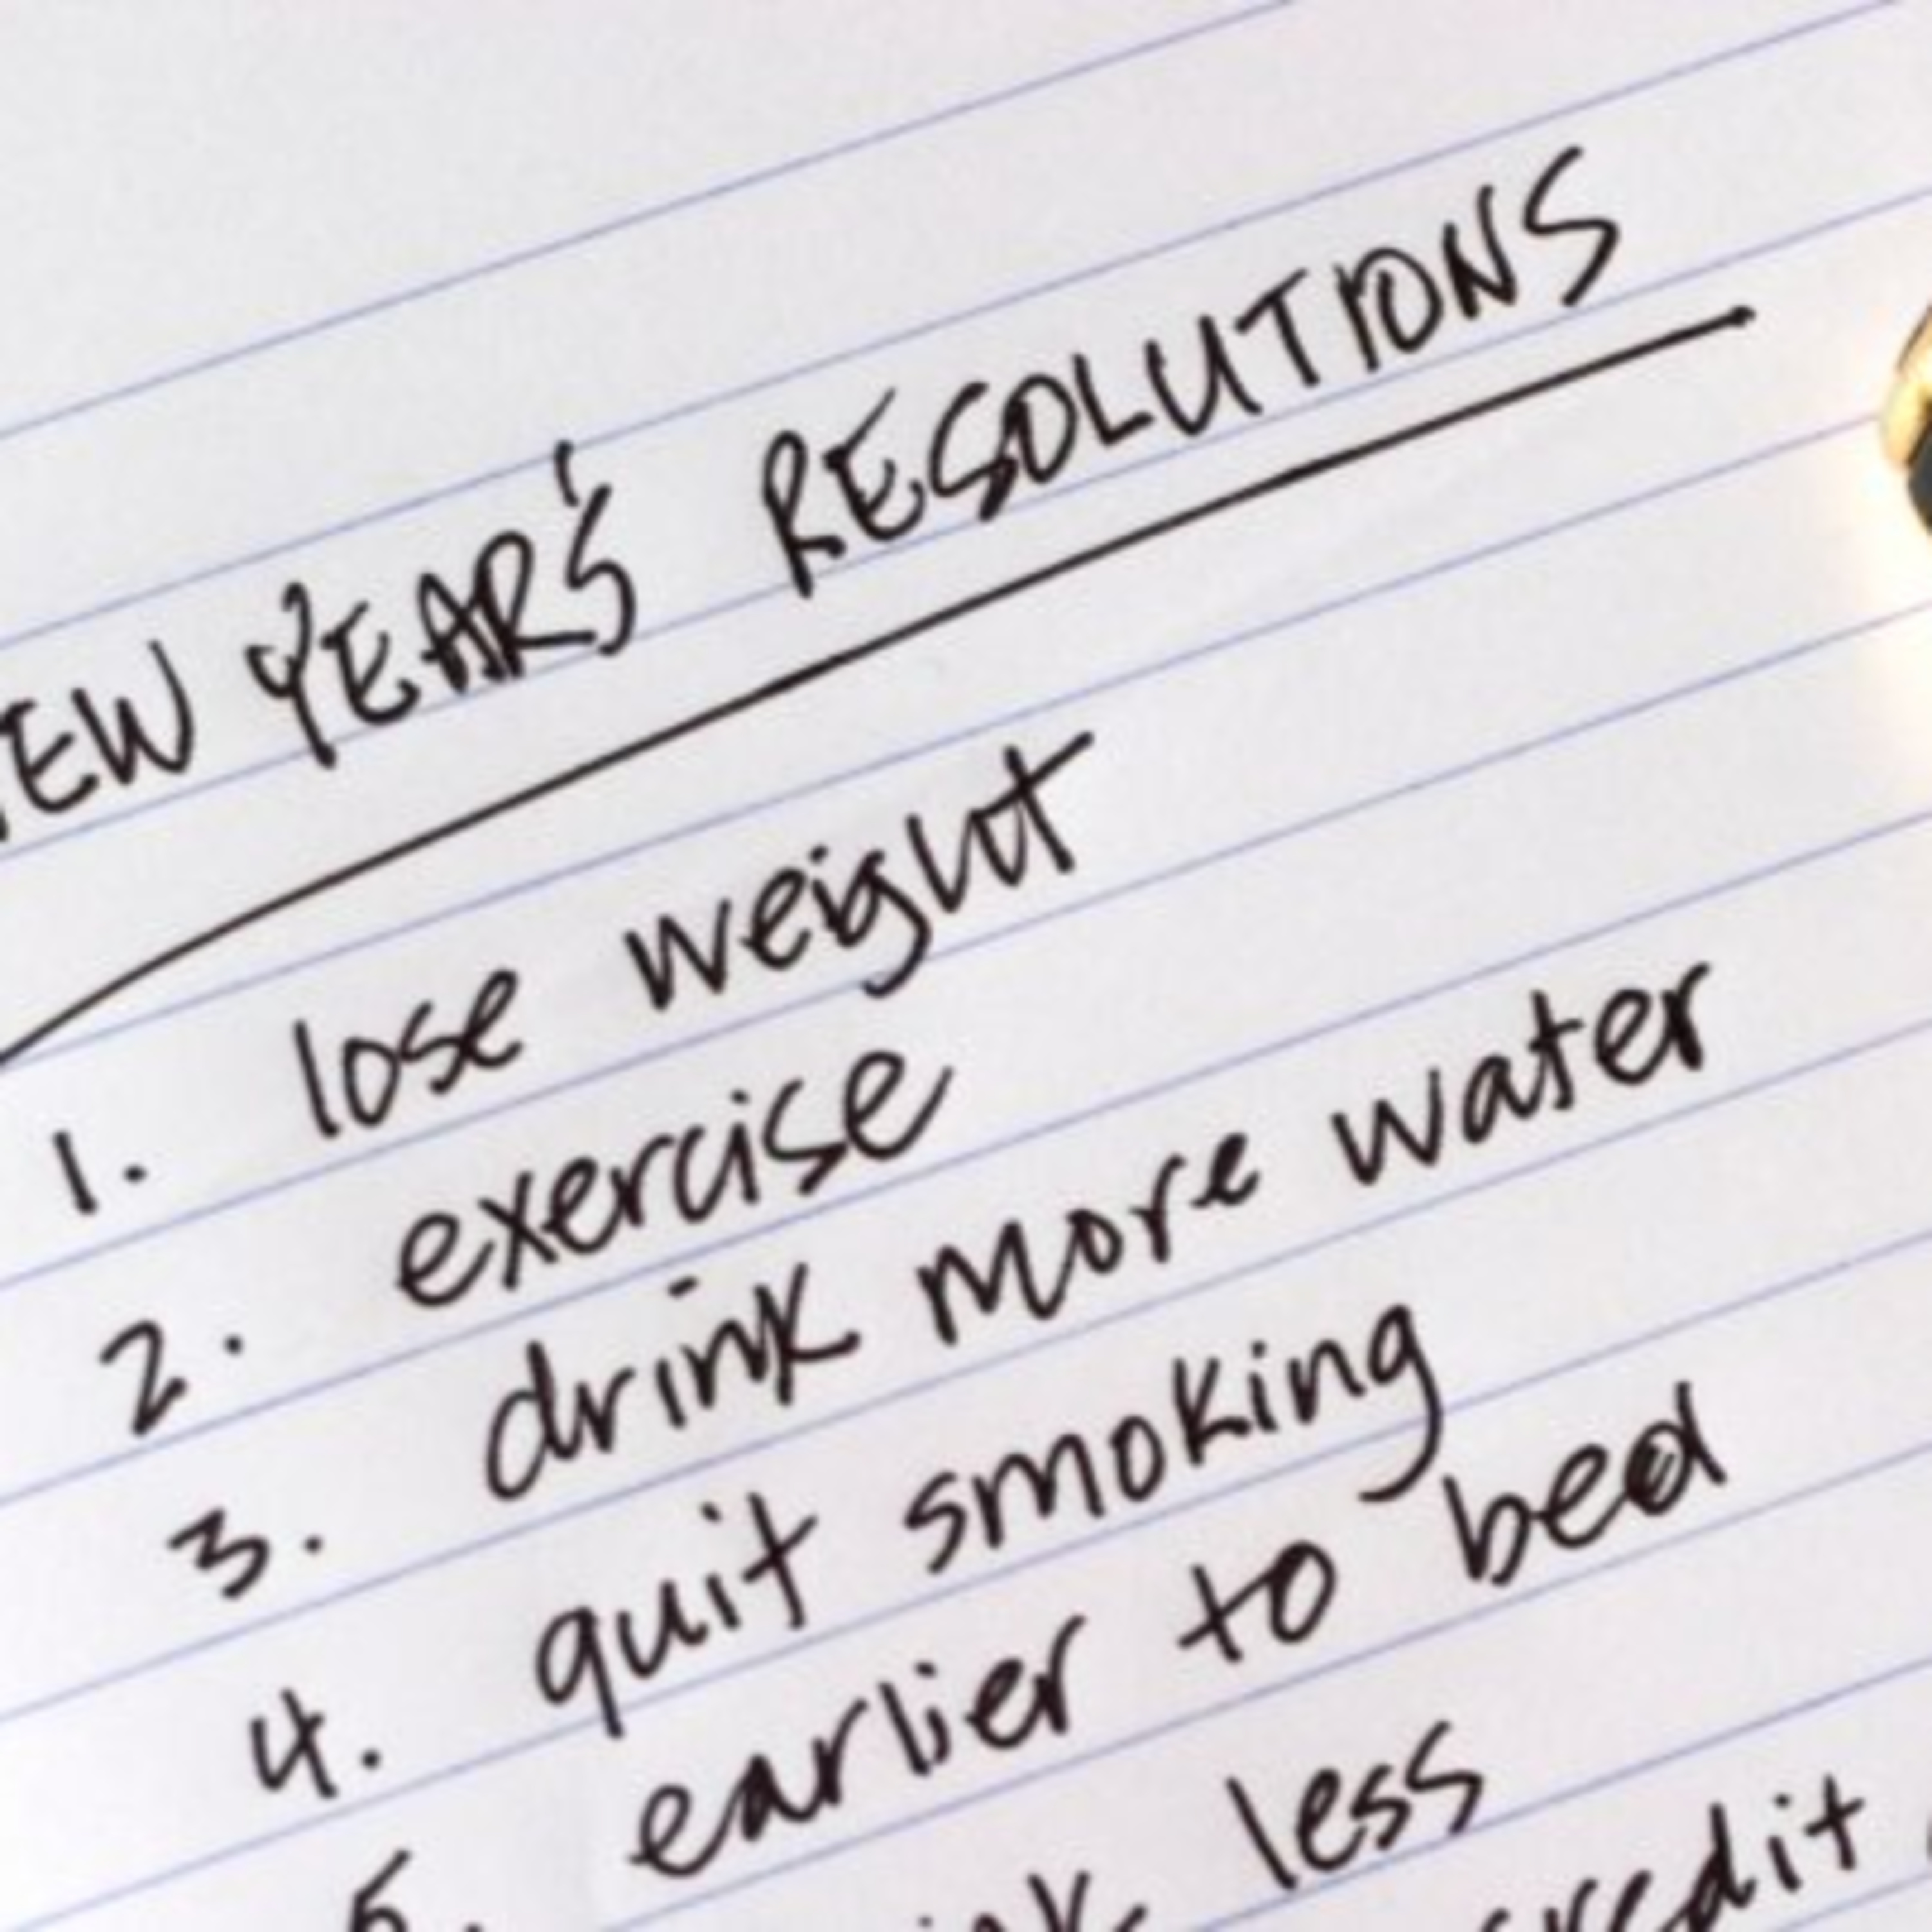 EW YEAR'S RESOLUTIONS
1. lose weight
2. exercise
3. drink more water
4. quit smoking
5. earlier to bed
less